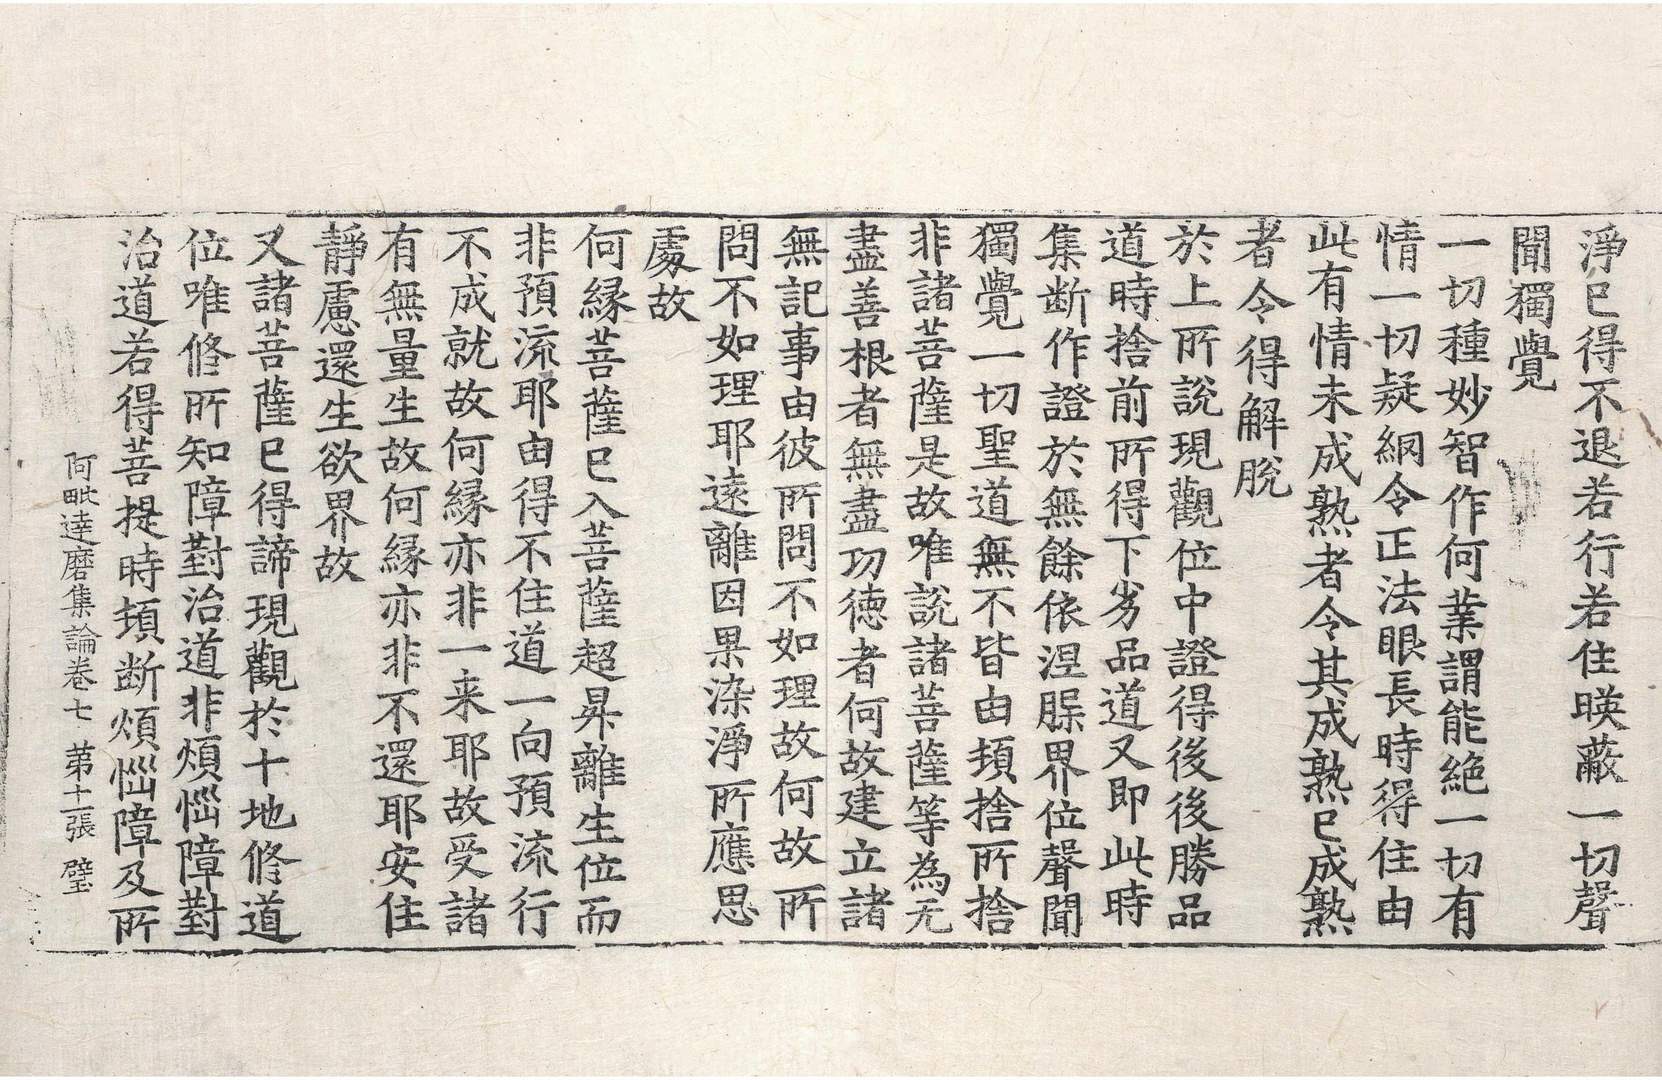 淨已得不退若行若住暎蔽一切聲
聞獨覺
一切種妙智作何業謂能絶一切有
情一切疑網令正法眼長時得住由
此有情未成熟者令其成熟已成熟
者令得解脫
於上所說現觀位中證得後後勝品
道時捨前所得下劣品道又即此時
集断作證於無餘依涅槃界位聲聞
獨覺一切聖道無不皆由頓捨所捨
非諸菩薩是故唯說諸菩薩等為无
盡善根者無盡功德者何故建立諸
無記事由彼所問不如理故何故所
問不如理耶遠離因果染淨所應思
處故
何緣菩薩已入菩薩超昇離生位而
非預流耶由得不住道一向預流行
不成就故何緣亦非一来耶故受諸
有無量生故何緣亦非不還耶安住
靜慮還生欲界故
又諸菩薩已得諦現觀於十地修道
位唯修所知障對治道非煩惱障對
治道若得菩提時頓断煩惱障及所
阿毗達磨集論卷七 第十一張 璧